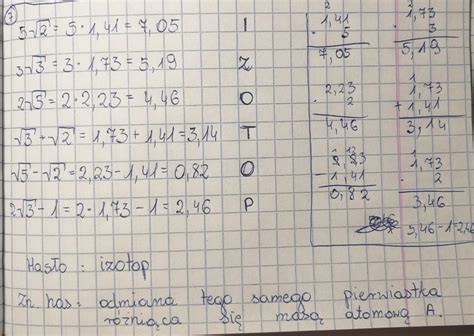 7
5√2 = 5 · 1,41 = 7,05 I
3√3 = 3 · 1,73 = 5,19 Z
2√5 = 2 · 2,23 = 4,46 O
√3 + √2 = 1,73 + 1,41 = 3,14 T
√5 - √2 = 2,23 - 1,41 = 0,82 O
2√3 - 1 = 2 · 1,73 - 1 = 2,46 P
Hasło : izotop
Zn. has : odmiana tego samego pierwiastka
różniąca się masą atomową A.
2
1,41
· 5
7,05
2
1,73
· 3
5,19
2,23
· 2
4,46
1
1,73
+ 1,41
3,14
2,23
- 1,41
0,82
1
1,73
· 2
3,46
3,46 - 1 = 2,46